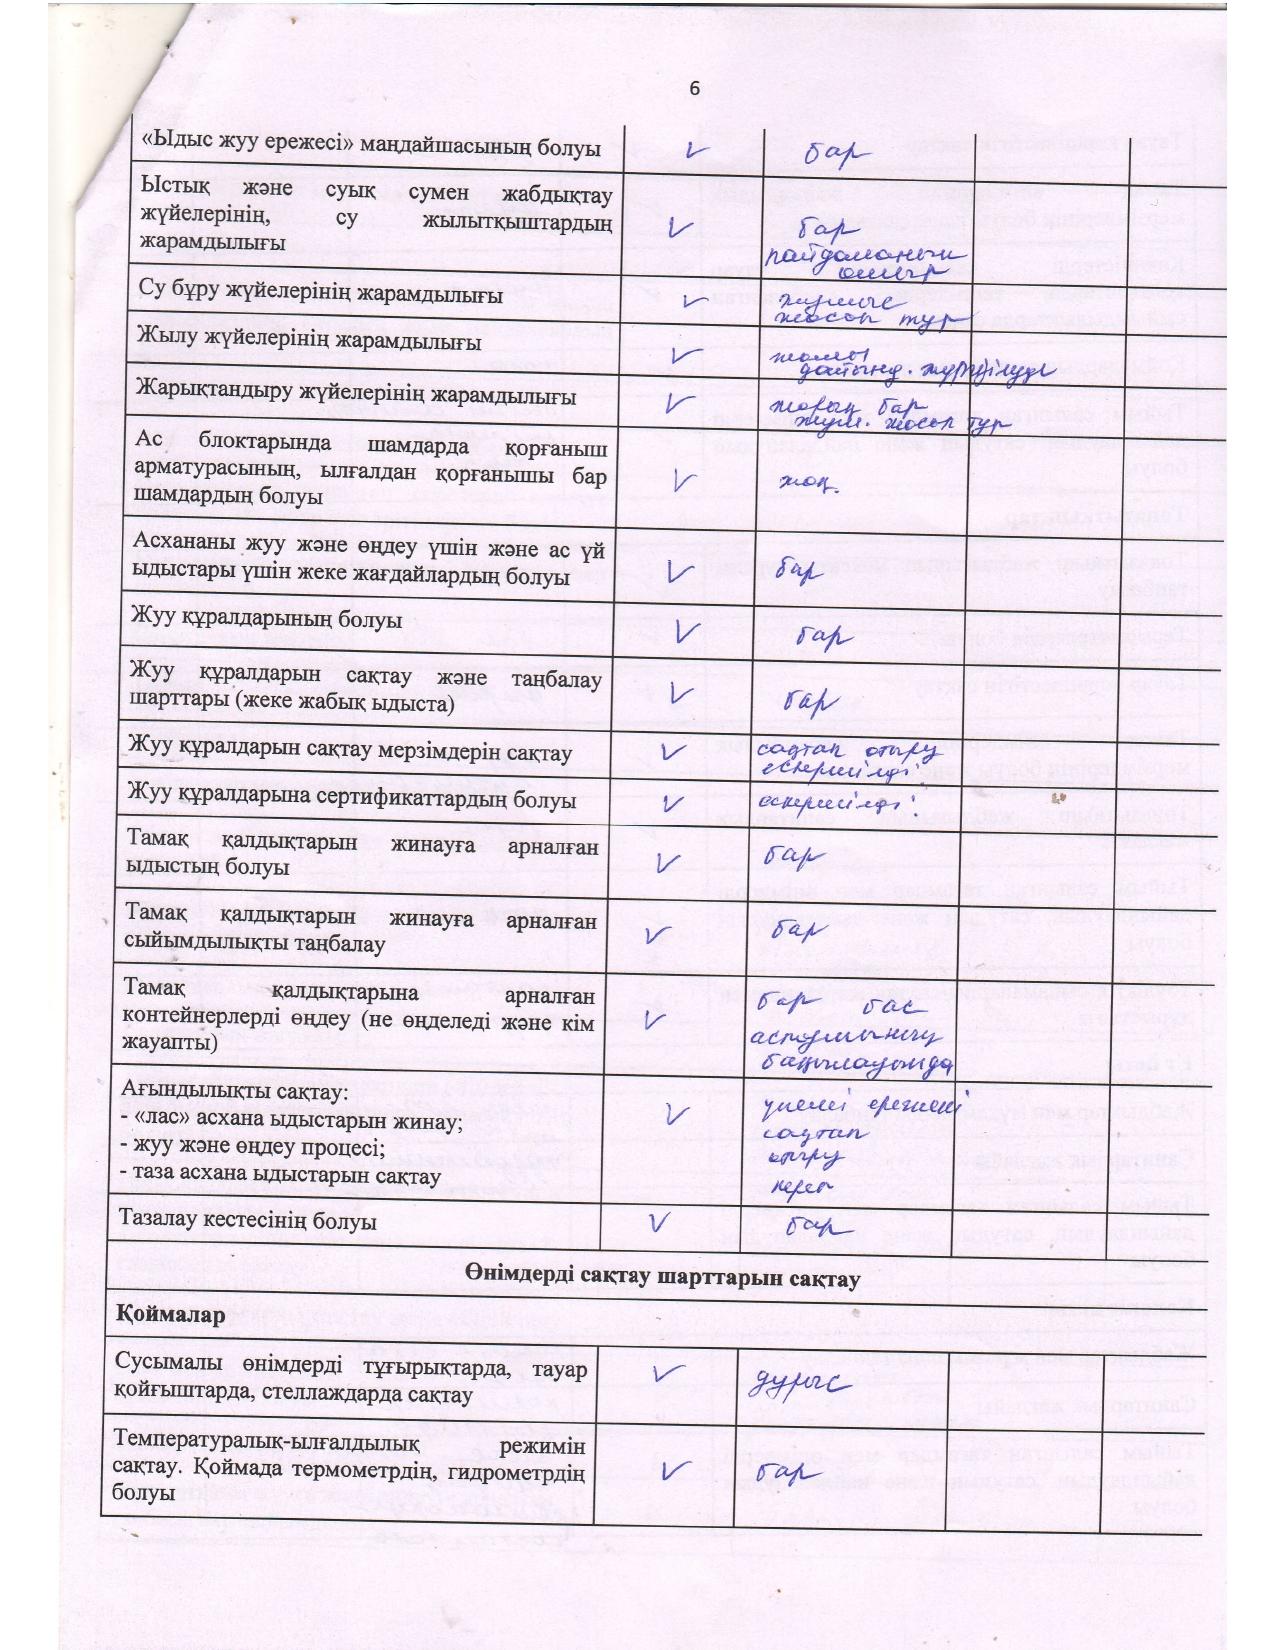 6
«Ыдыс жуу ережесі» маңдайшасының болуы ✓ бар
Ыстық және суық сумен жабдықтау
жүйелерінің, су жылытқыштардың ✓ бар
жарамдылығы
Су бұру жүйелерінің жарамдылығы ✓ жұмыс
жасап тұр
Жылу жүйелерінің жарамдылығы ✓ жалпы
дайынд. жүргізілуде
Жарықтандыру жүйелерінің жарамдылығы ✓ жарық бар
жұм. жасап тұр
Ас блоктарында шамдарда қорғаныш
арматурасының, ылғалдан қорғанышы бар ✓ жоқ.
шамдардың болуы
Асхананы жуу және өңдеу үшін және ас үй
ыдыстары үшін жеке жағдайлардың болуы ✓ бар
Жуу құралдарының болуы ✓ бар
Жуу құралдарын сақтау және таңбалау
шарттары (жеке жабық ыдыста) ✓ бар
Жуу құралдарын сақтау мерзімдерін сақтау ✓ сақтап отыру
ескерілді
Жуу құралдарына сертификаттардың болуы ✓
Тамақ қалдықтарын жинауға арналған
ыдыстың болуы ✓ бар
Тамақ қалдықтарын жинауға арналған
сыйымдылықты таңбалау ✓ бар
Тамақ қалдықтарына арналған бар бас
контейнерлерді өңдеу (не өңделеді және кім ✓ аспазшының
жауапты) бақылауында
Ағындылықты сақтау: ✓ үнемі ережені
- «лас» асхана ыдыстарын жинау; сақтап
- жуу және өңдеу процесі; отыру
- таза асхана ыдыстарын сақтау керек
Тазалау кестесінің болуы ✓ бар
Өнімдерді сақтау шарттарын сақтау
Қоймалар
Сусымалы өнімдерді тұғырықтарда, тауар ✓ дұрыс
қойғыштарда, стеллаждарда сақтау
Температуралық-ылғалдылық режимін
сақтау. Қоймада термометрдің, гидрометрдің ✓ бар
болуы